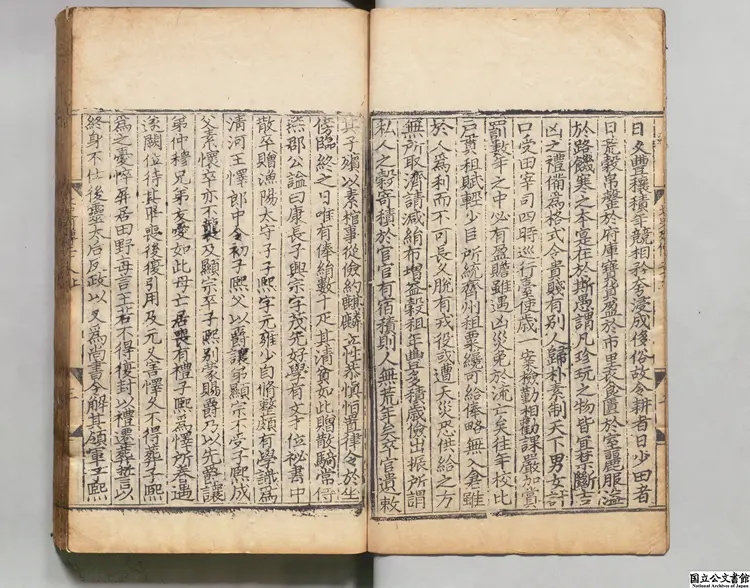 日久豊穰積年競相矜夸浸成侈俗故令耕者日少田者
日荒穀帛罄於府庫寶貨盈於市里衣食匱於室麗服溢
於路饑寒之本寔在於斯愚謂凡珍玩之物皆宜禁斷吉
凶之禮備爲格式令貴賤有別人歸朴素制天下男女計
口受田宰司四時巡行臺使歲一案檢勤相勸課嚴加賞
罰數年之中必有盈贍雖遇凶災免於流亡矣往年校比
戶貫租賦輕少臣所統齊州租粟纔可給俸略無入倉雖
於人爲利而不可長久脫有戎役或遭天災恐供給之方
無所取濟請減絹布增益穀租年豊多積歲儉出振所謂
私人之穀寄積於官官有宿積則人無荒年矣卒官遺敕
其子殯以素棺事從儉約麒麟立性恭慎恒置律令於坐
傍臨終之日唯有俸絹數十疋其清貧如此贈散騎常侍
燕郡公謚曰康長子興宗字茂先好學有文才位祕書中
散卒贈漁陽太守子子熙字元雍少自脩整頗有學識爲
清河王懌郎中令初子熙父以爵讓弟顯宗不受子熙成
父素懷卒亦不襲及顯宗卒子熙別蒙賜爵乃以先爵讓
弟仲穆兄弟友愛如此母亡居喪有禮子熙爲懌所眷遇
遂闕位待其畢喪後復引用及元叉害懌久不得葬子熙
爲之憂悴屏居田野每言王若不得復封以禮遷葬誓以
終身不仕後靈太后反政以叉爲尚書令解其領軍子熙
国立公文書館
National Archives of Japan